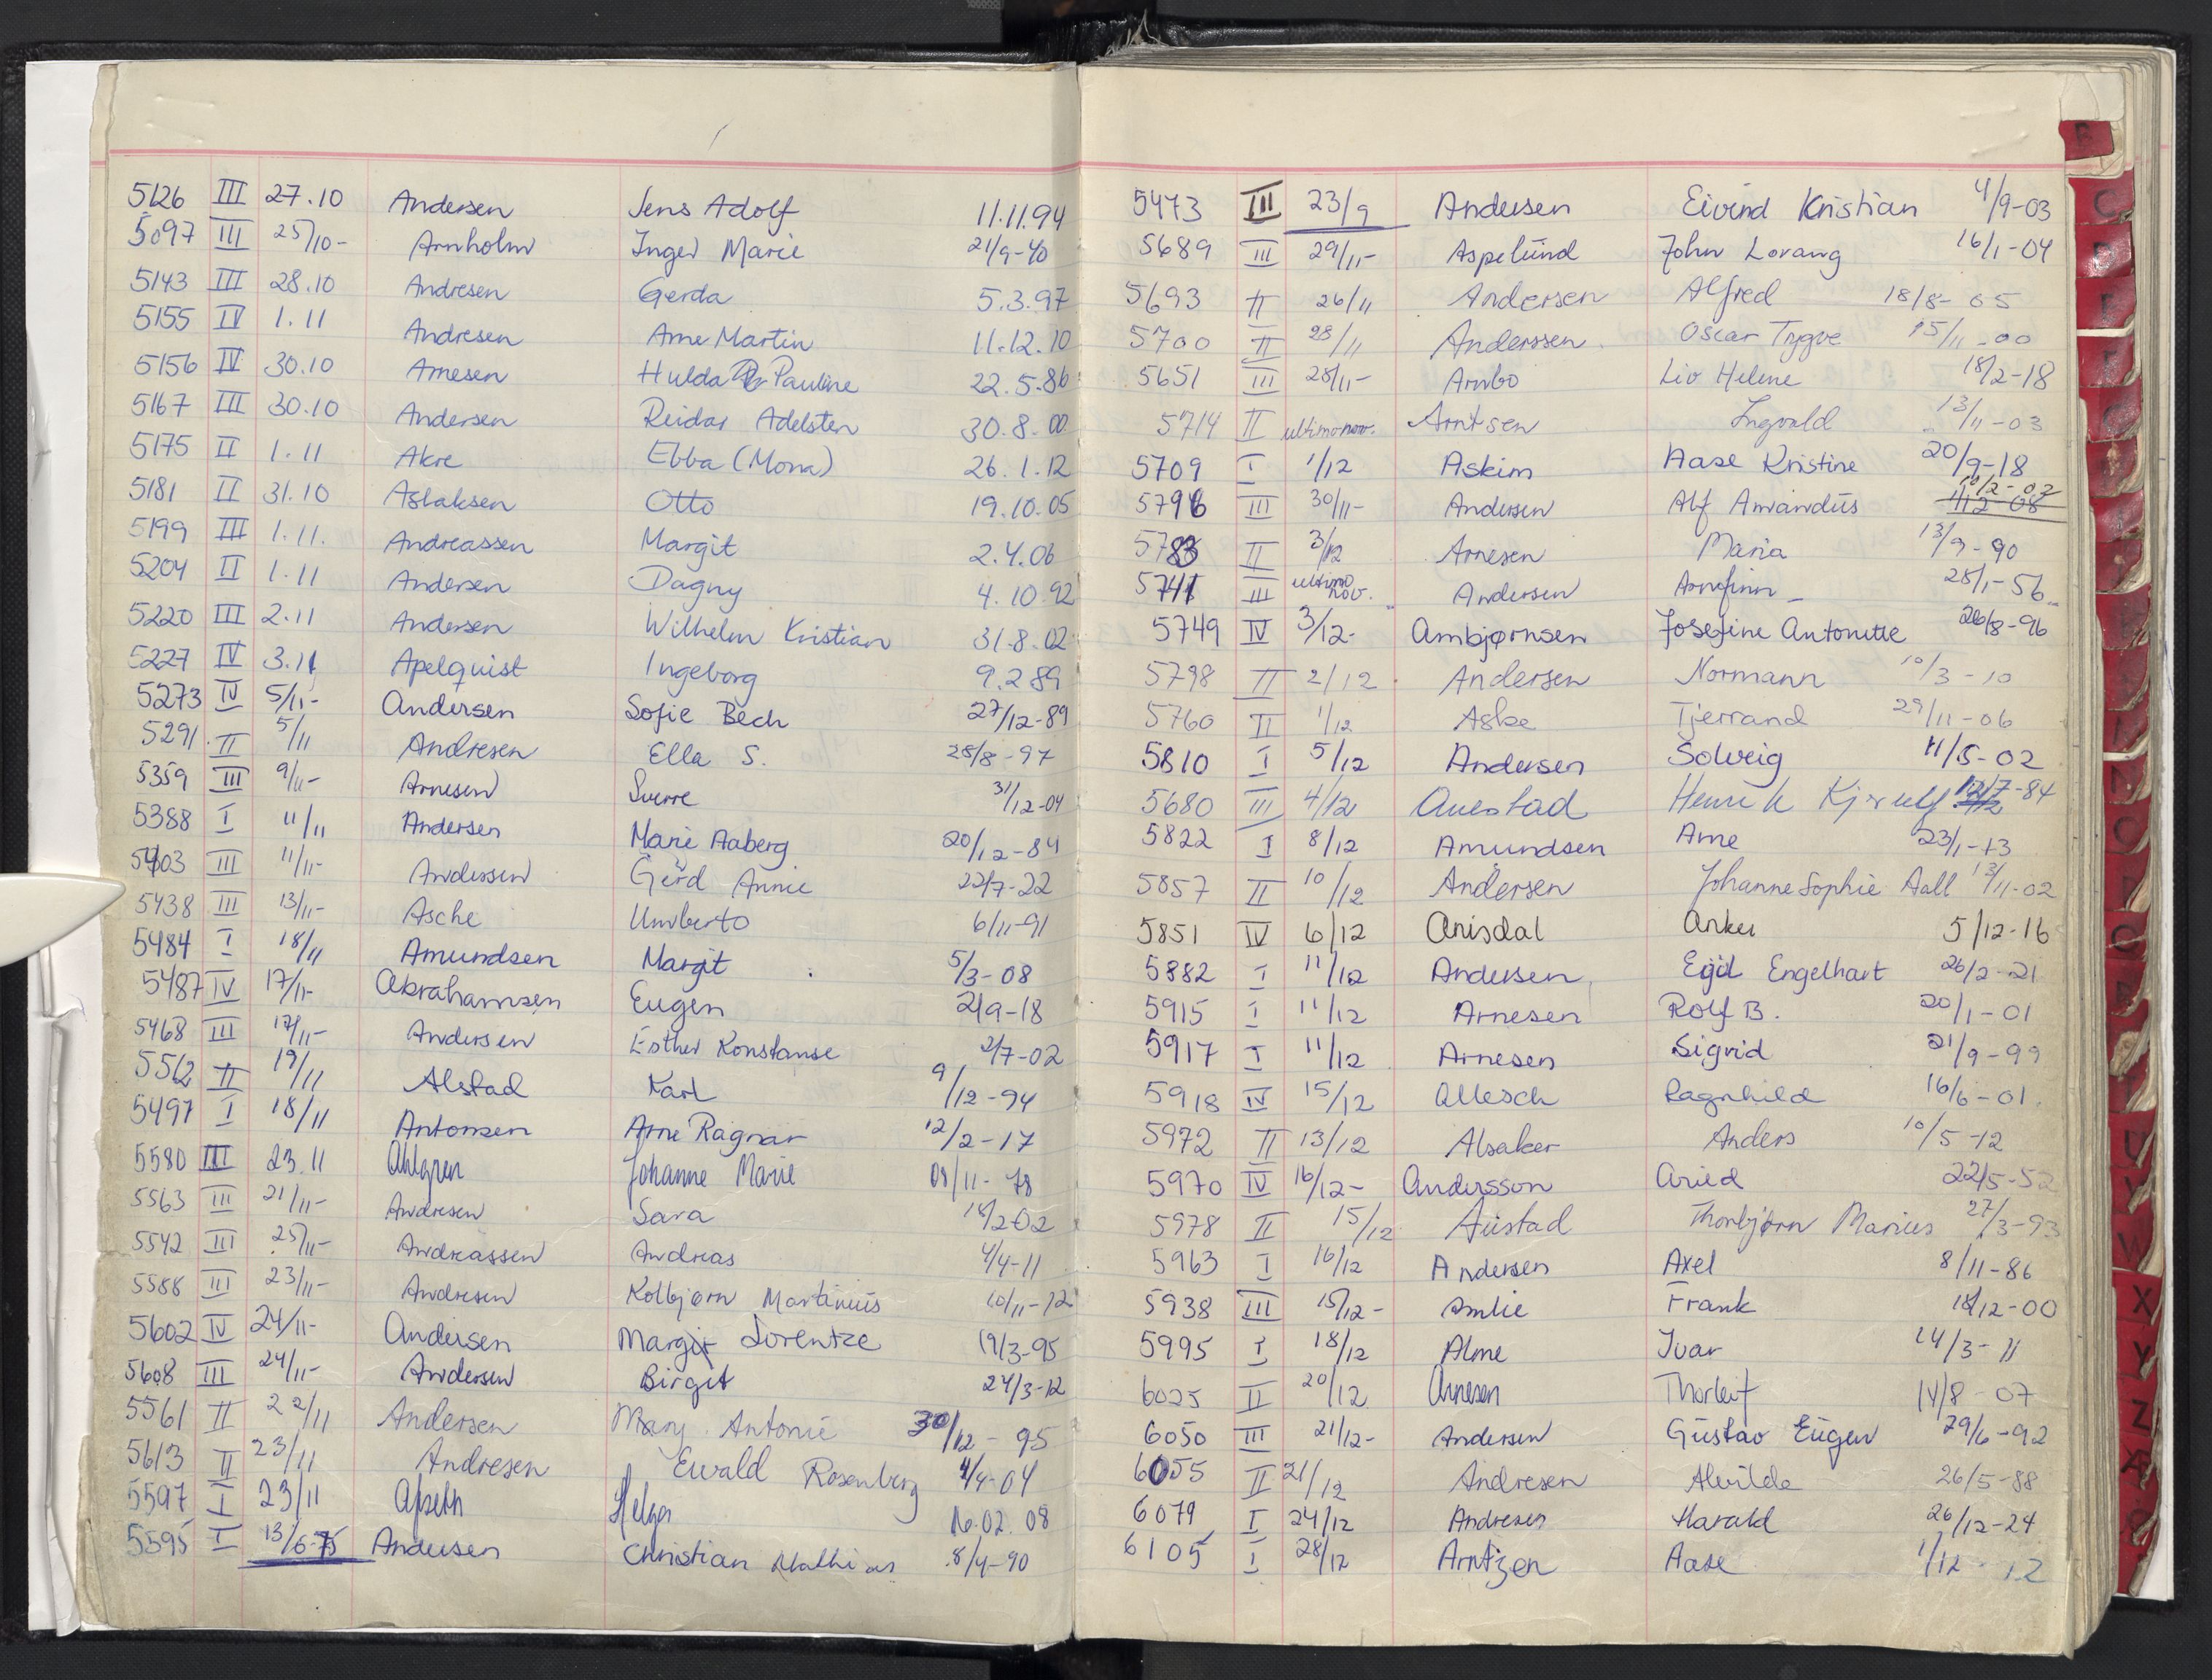 5126 III 27.10 Andersen Jens Adolf 11.11.94
5097 III 25/10- Arnholm Inger Marie 21/9-40
5143 III 28.10 Andresen Gerda 5.3.97
5155 IV 1.11 Andresen Arne Martin 11.12.10
5156 IV 30.10 Arnesen Hulda Pauline 22.5.86
5167 III 30.10 Andersen Reidar Adelsten 30.8.00
5175 II 1.11 Akre Ebba (Mona) 26.1.12
5181 II 31.10 Aslaksen Otto 19.10.05
5199 III 1.11. Andreassen Margit 2.4.06
5204 II 1.11 Andersen Dagny 4.10.92
5220 III 2.11 Andersen Wilhelm Kristian 31.8.02
5227 IV 3.11 Apelquist Ingeborg 9.2.89
5273 IV 5/11- Andersen Sofie Bech 27/12-89
5291 II 5/11 Andresen Ella S. 28/8-97
5359 III 9/11- Arnesen Sverre 31/12-04
5388 I 11/11 Andersen Marie Aaberg 20/12-84
5403 III 11/11- Andersen Gerd Annie 22/7-22
5438 III 13/11- Asche Umberto 6/11-91
5484 I 18/11 Amundsen Margit 5/3-08
5487 IV 17/11- Abrahamsen Eugen 2/9-18
5468 III 17/11- Andersen Esther Konstanse 2/7-02
5562 II 19/11 Alstad Karl 9/12-94
5497 I 18/11 Antonsen Arne Ragnar 12/2-17
5580 III 23.11 Ahlgren Johanne Marie 08/11-78
5563 III 21/11- Andresen Sara
5542 III 25/11- Andreassen Andreas 4/4-11
5588 III 23/11- Andresen Kolbjørn Martinius 10/11-12
5602 IV 24/11- Andersen Margit Lorentze 19/3-95
5608 III 24/11- Andersen Birgit 24/3-12
5561 II 22/11 Andersen Mary Antonie 30/12-95
5613 II 23/11 Andresen Ewald Rosenberg 4/4-04
5597 I 23/11 Apseth Helga 16.02.08
5595 I 13/6-75 Andersen Christian Mathias 8/4-90
5473 III 23/9 Andersen Eivind Kristian 4/9-03
5689 III 29/11- Aspelund John Lorang 16/1-04
5693 II 26/11 Andersen Alfred 18/8-05
5700 II 28/11 Anderssen Oscar Trygve 15/11-00
5651 III 28/11- Arnbo Liv Helene 18/2-18
5714 II ultimo nov. Arntsen Ingvald 13/11-03
5709 I 1/12 Askim Aase Kristine 20/9-18
5796 III 30/11- Andersen Alf Amandus 10/2-02
5783 II 3/12 Arnesen Maria 13/9-90
5741 III ultimo nov. Andersen Arnfinn 28/1-56
5749 IV 3/12- Ambjørnsen Josefine Antonette 26/8-96
5798 II 2/12 Andersen Normann 10/3-10
5760 II 1/12 Aske Tjerrand 29/11-06
5810 I 5/12 Andersen Solveig 11/5-02
5680 III 4/12 Auestad Henrik Kjerulf 12/7-84
5822 I 8/12 Amundsen Arne 23/1-13
5857 II 10/12 Andersen Johanne Sophie Aall 13/11-02
5851 IV 6/12 Arisdal Anker 5/12-16
5882 I 11/12 Andersen Egil Engelhart 26/2-21
5915 I 11/12 Arnesen Rolf B. 20/1-01
5917 I 11/12 Arnesen Sigrid 21/9-99
5918 IV 15/12 Allesch Ragnhild 16/6-01
5972 II 13/12 Alsaker Anders 10/5-12
5970 IV 16/12- Andersson Arvid 22/5-52
5978 II 15/12 Austad Thorbjørn Marius 27/3-93
5963 I 16/12 Andersen Axel 8/11-86
5938 III 15/12- Amlie Frank 18/12-00
5995 I 18/12 Alme Ivar 14/3-11
6025 II 20/12 Arnesen Thorleif 14/8-07
6050 III 21/12- Andersen Gustav Eugen 29/6-92
6055 II 21/12 Andresen Alvilde 26/5-88
6079 I 24/12 Andresen Harald 26/12-24
6105 I 28/12 Arntzen Aase 1/12-12
B
C
X
Y
Z